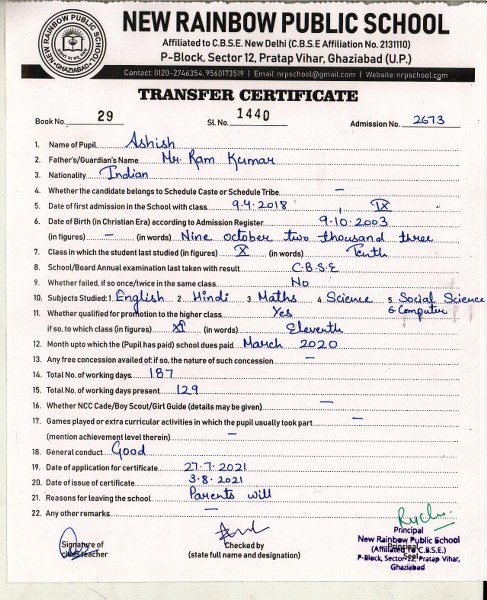 NEW RAINBOW PUBLIC SCHOOL
Affiliated to C.B.S.E. New Delhi (C.B.S.E Affiliation No. 2131110)
P-Block, Sector 12, Pratap Vihar, Ghaziabad (U.P.)
Contact: 0120-2746354, 9560173519 | Email: nrpschool@gmail.com | Website: nrpschool.com
TRANSFER CERTIFICATE
Book No. 29 Sl. No. 1440 Admission No. 2673
1. Name of Pupil Ashish
2. Father's/Guardian's Name Mr. Ram Kumar
3. Nationality Indian
4. Whether the candidate belongs to Schedule Caste or Schedule Tribe —
5. Date of first admission in the School with class 9.4.2018, IX
6. Date of Birth (in Christian Era) according to Admission Register 9.10.2003
(in figures) — (in words) Nine october two thousand three
7. Class in which the student last studied (in figures) X (in words) Tenth
8. School/Board Annual examination last taken with result C.B.S.E
9. Whether failed, if so once/twice in the same class No
10. Subjects Studied: 1. English 2. Hindi 3. Maths 4. Science 5. Social Science
6 Computer
11. Whether qualified for promotion to the higher class Yes
if so, to which class (in figures) XI (in words) Eleventh
12. Month upto which the (Pupil has paid) school dues paid March 2020
13. Any free concession availed of: if so, the nature of such concession —
14. Total No. of working days 187
15. Total No. of working days present 129
16. Whether NCC Cade/Boy Scout/Girl Guide (details may be given) —
17. Games played or extra curricular activities in which the pupil usually took part —
(mention achievement level therein) —
18. General conduct Good
19. Date of application for certificate 27.7.2021
20. Date of issue of certificate 3.8.2021
21. Reasons for leaving the school Parents will
22. Any other remarks —
Signature of
class teacher
Checked by
(state full name and designation)
Principal
New Rainbow Public School
(Affiliated To C.B.S.E.)
P-Block, Sector-12, Pratap Vihar,
Ghaziabad